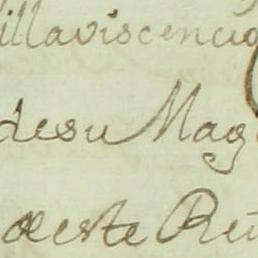 illavisencio
desu Mag
deste Rei